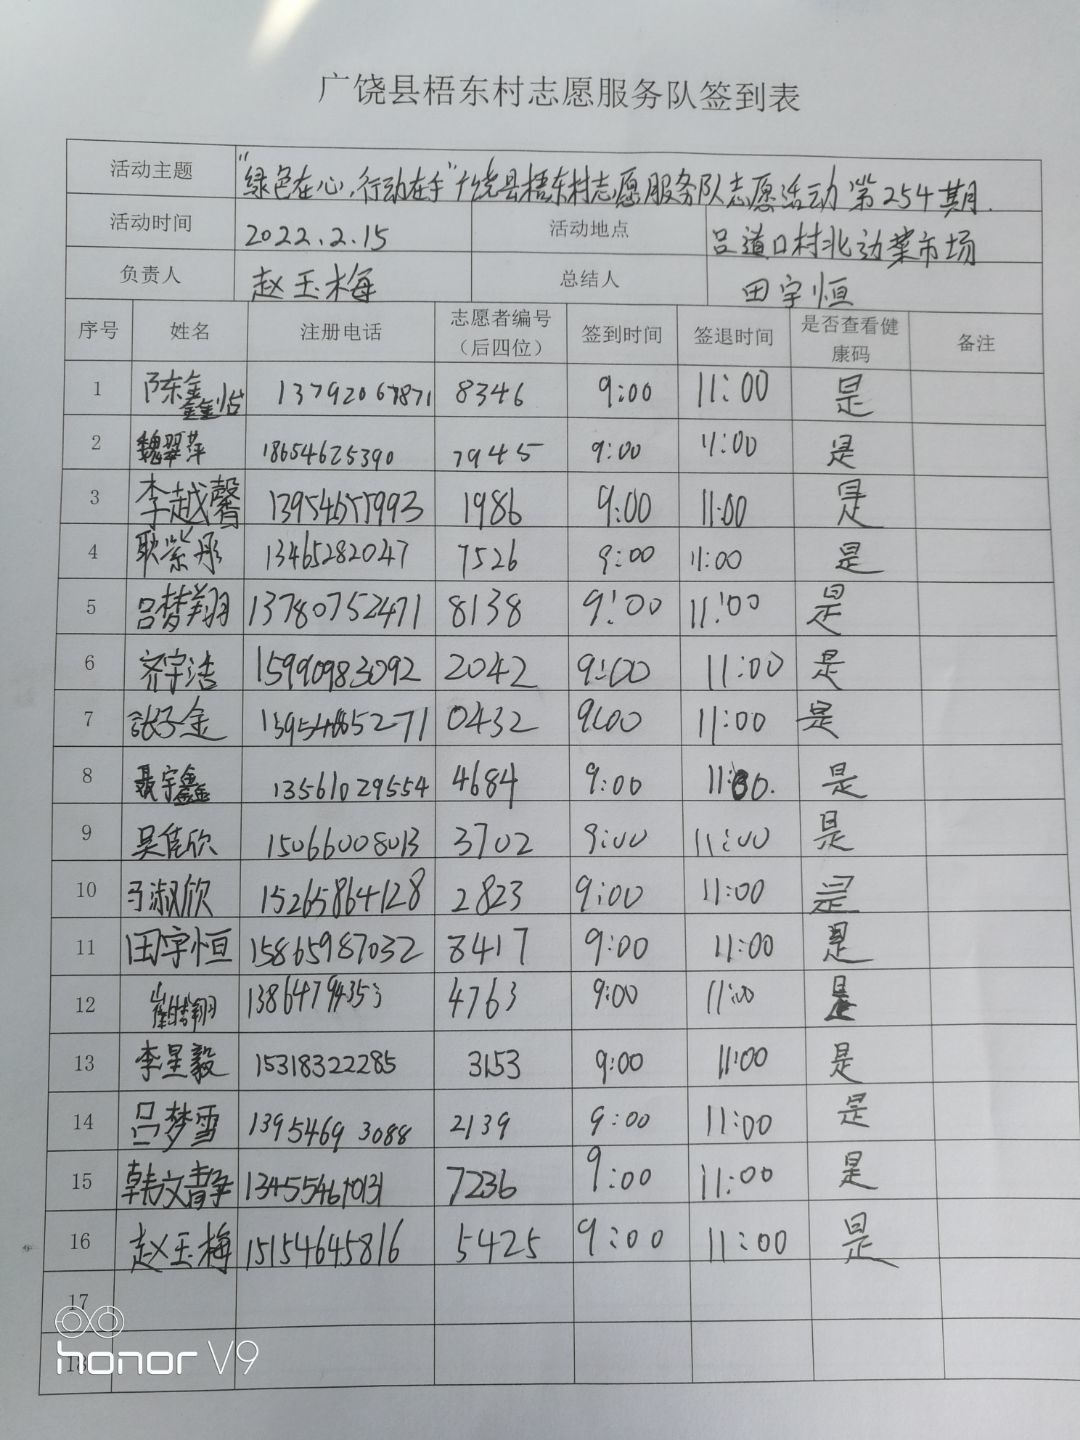 广饶县梧东村志愿服务队签到表
活动主题 "绿色在心,行动在手"广饶县梧东村志愿服务队志愿活动第254期.
活动时间 2022.2.15 活动地点 吕道口村北边菜市场
负责人 赵玉梅 总结人 田宇恒
序号 姓名 注册电话 志愿者编号（后四位） 签到时间 签退时间 是否查看健康码 备注
1 陈鑫怡 13792067871 8346 9:00 11:00 是
2 魏翠萍 18654625390 7945 9:00 11:00 是
3 李越馨 1986 9:00 11:00 是
4 耿紫彤 13465282047 7526 9:00 11:00 是
5 吕梦翔 13780752471 8138 9:00 11:00 是
6 齐宇浩 15990983092 2042 9:00 11:00 是
7 张子金 0432 9:00 11:00 是
8 聂宇鑫 13561029554 4684 9:00 11:00. 是
9 吴佳欣 15066008013 3702 9:00 11:00 是
10 淑欣 15265864128 2823 9:00 11:00 是
11 田宇恒 15865987032 8417 9:00 11:00 是
12 崔皓翔 4763 9:00 11:00 是
13 李星毅 15318322285 3153 9:00 11:00 是
14 吕梦雪 13954693088 2139 9:00 11:00 是
15 韩文静 7236 9:00 11:00 是
16 赵玉梅 15154645816 5425 9:00 11:00 是
17
18
honor V9